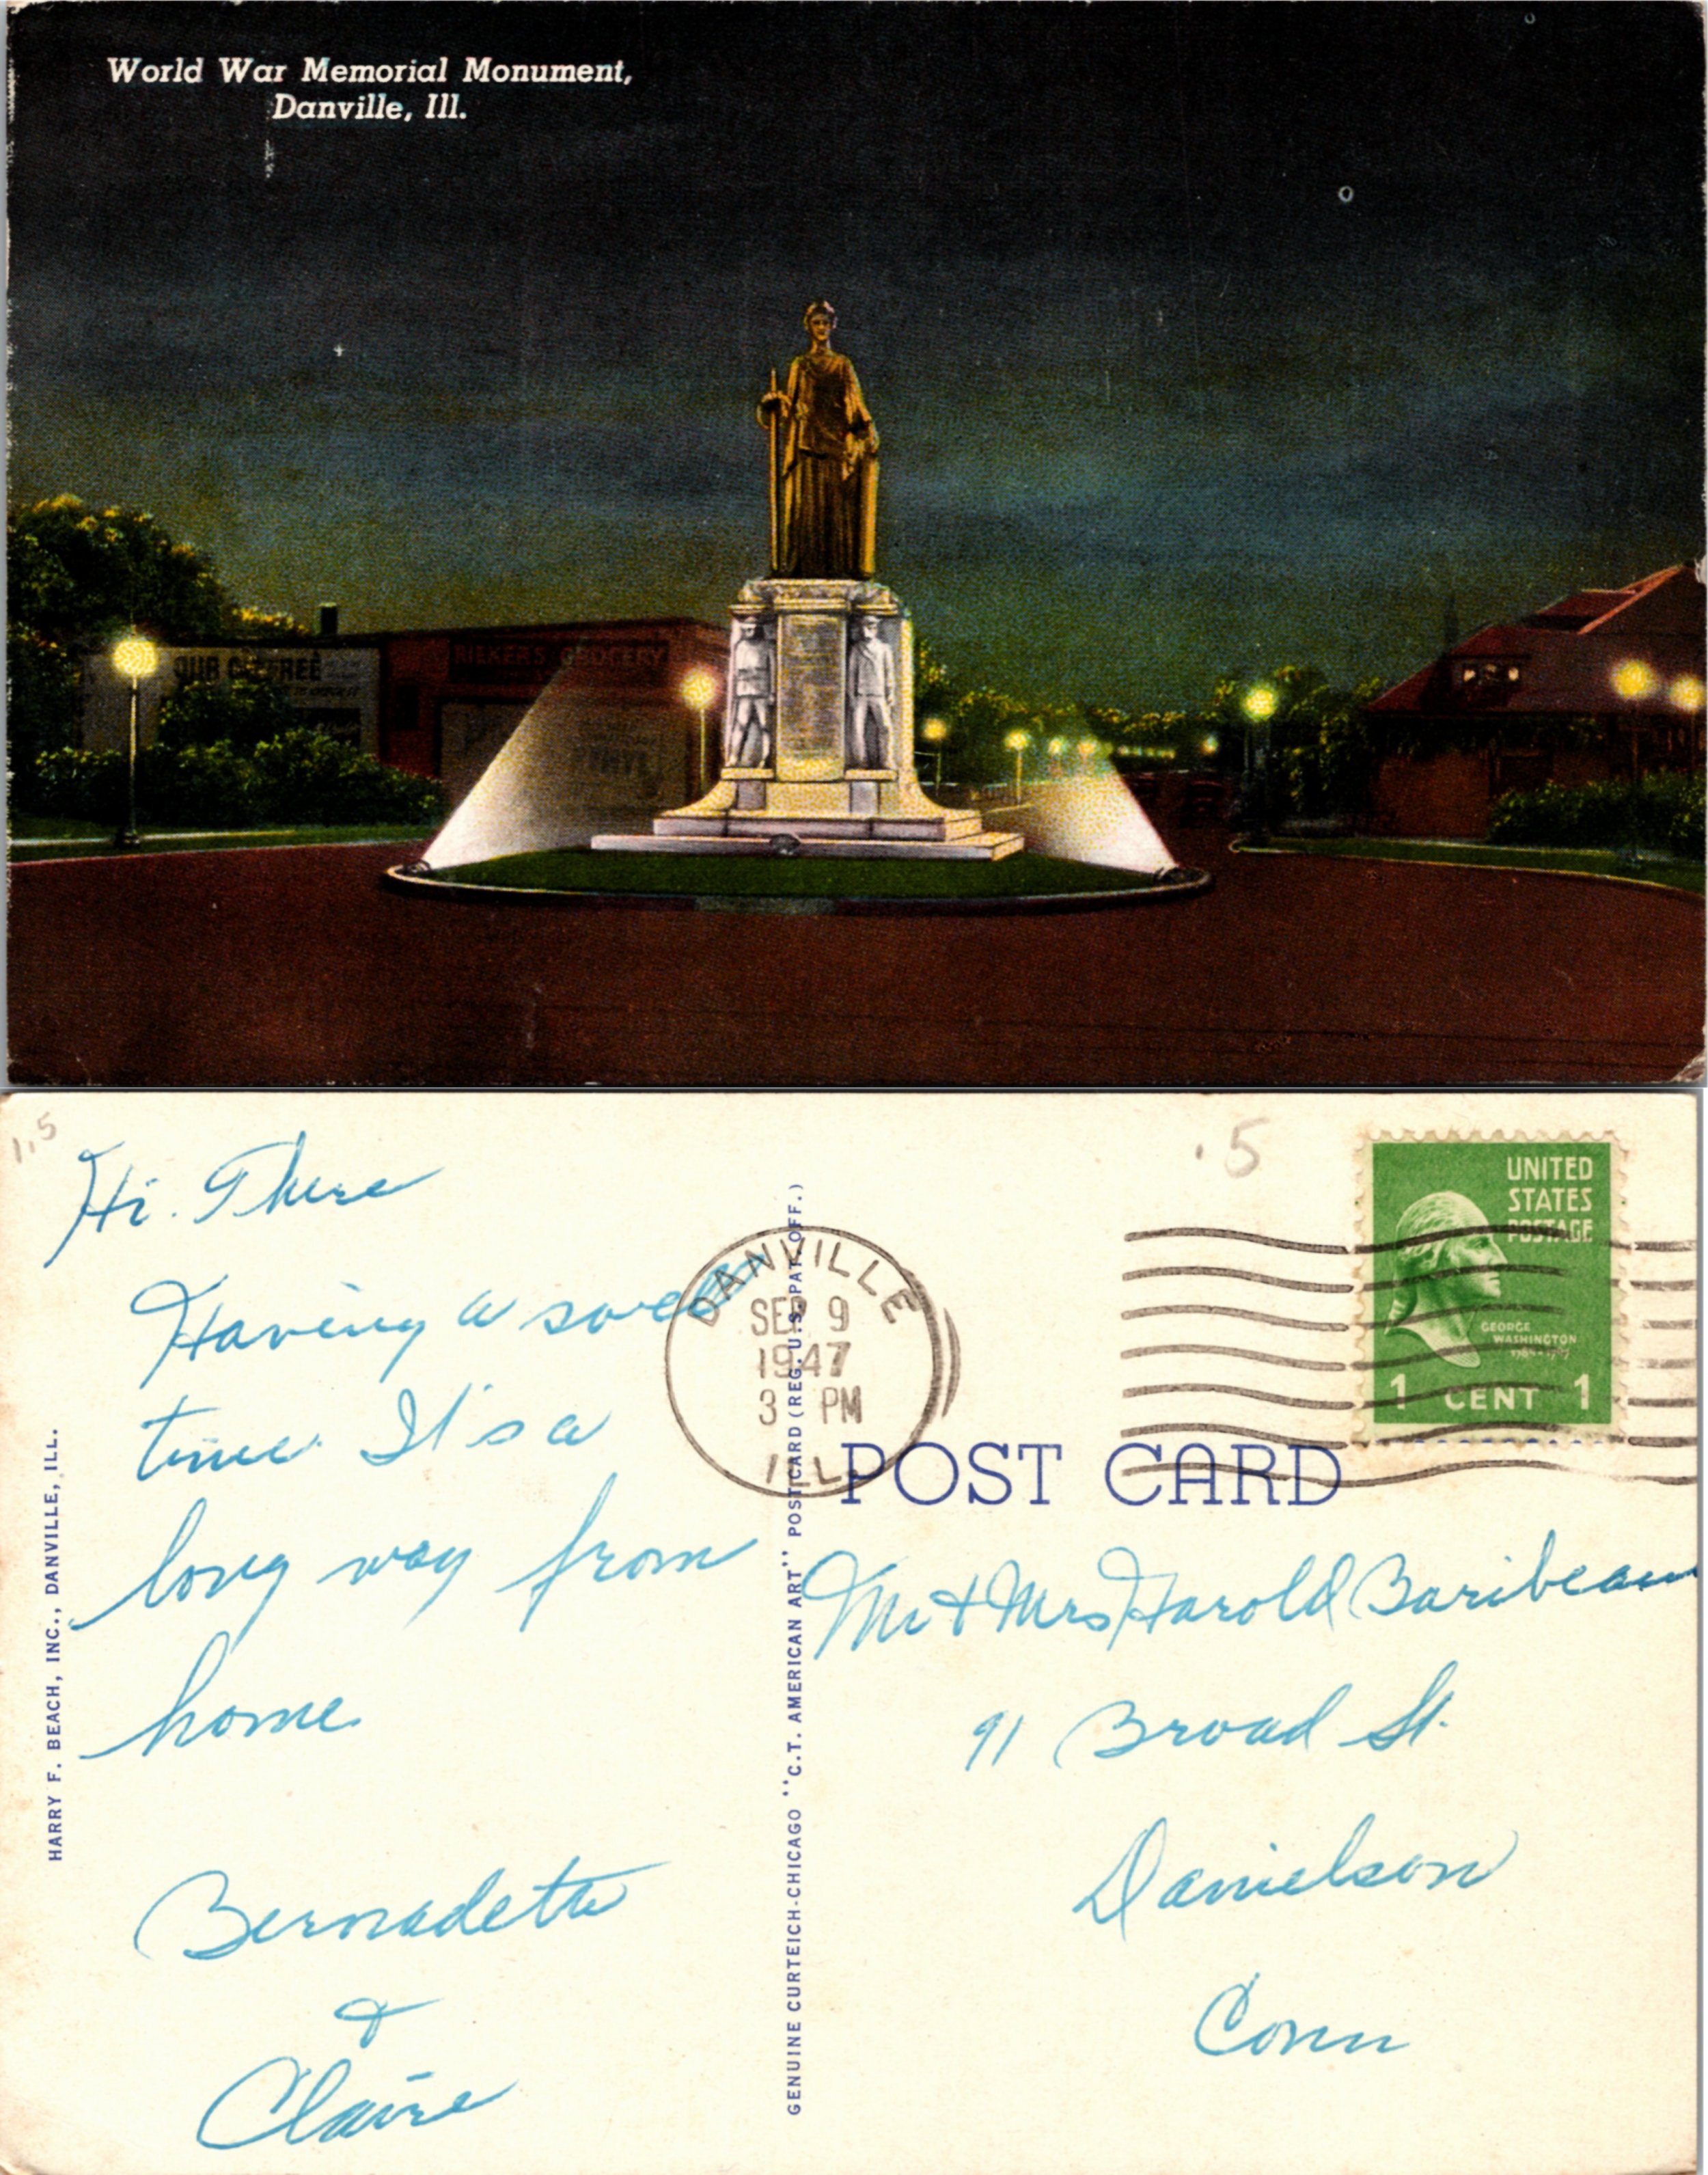 World War Memorial Monument,
Danville, Ill.
RILKERS GROCERY
1.5
Hi. There
Having a
time. It's a
long way from
home.
Bernadette
&
Claire
HARRY F. BEACH, INC., DANVILLE, ILL.
GENUINE CURTEICH-CHICAGO "C.T. AMERICAN ART" POST CARD (REG. U.S. PAT. OFF.)
DANVILLE
SEP 9
1947
3 PM
ILL.
.5
UNITED
STATES
POSTAGE
GEORGE
WASHINGTON
1789-1797
1 CENT 1
POST CARD
Mr & Mrs Harold Baribeau
91 Broad St.
Danielson
Conn